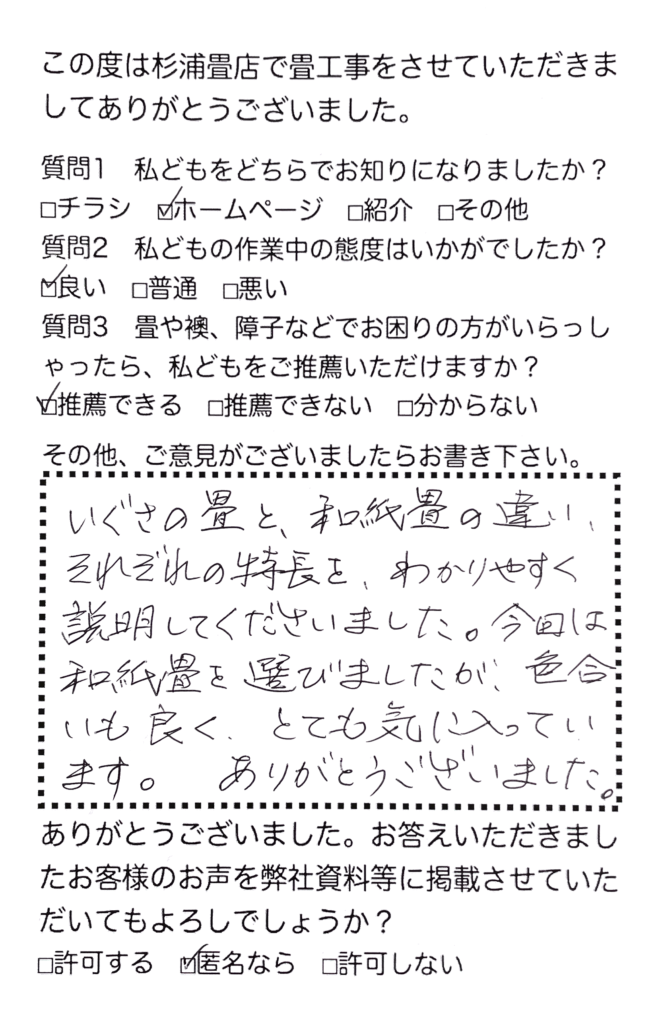 この度は杉浦畳店で畳工事をさせていただきま
してありがとうございました。
質問1　私どもをどちらでお知りになりましたか？
□チラシ　☑ホームページ　□紹介　□その他
質問2　私どもの作業中の態度はいかがでしたか？
☑良い　□普通　□悪い
質問3　畳や襖、障子などでお困りの方がいらっし
ゃったら、私どもをご推薦いただけますか？
☑推薦できる　□推薦できない　□分からない
その他、ご意見がございましたらお書き下さい。
いぐさの畳と、和紙畳の違い、
それぞれの特長を、わかりやすく
説明してくださいました。今回は
和紙畳を選びましたが、色合
いも良く、とても気に入ってい
ます。　ありがとうございました。
ありがとうございました。お答えいただきまし
たお客様のお声を弊社資料等に掲載させていた
だいてもよろしでしょうか？
□許可する　☑匿名なら　□許可しない